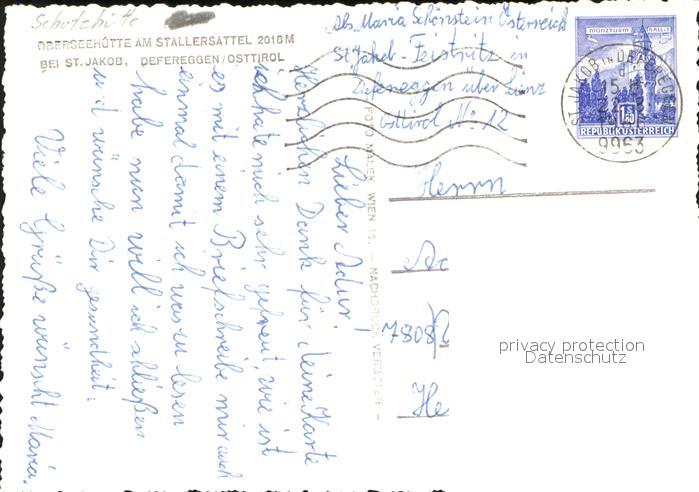 Schutzhütte
OBERSEEHÜTTE AM STALLERSATTEL 2016M
BEI ST. JAKOB, DEFEREGGEN/OSTTIROL
Abs. Maria Schönstein Österreich
St Jakob - Feistritz in
Defereggen über Lienz
Osttirol Nr 12
MÜNZTURM HALL i. T.
S
REPUBLIK ÖSTERREICH
ST. JAKOB IN DEFEREGGEN
9963
Lieber Adur!
Herzlichen Dank für deine Karte
ich habe mich sehr gefreut, wie ist
es mit einem Brief schreibe mir auch
einmal damit ich was zu lesen
habe nun will ich schließen
und wünsche Dir gesundheit.
Viele Grüße wünscht Maria.
FOTO MALEK WIEN 15. — NACHDRUCK VERBOTEN —
Herrn
Ac
7808
He
privacy protection
Datenschutz